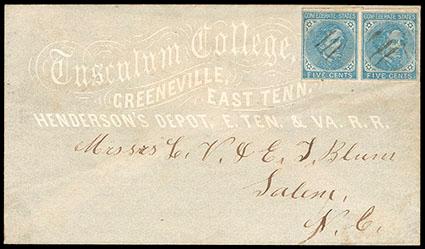 CONFEDERATE STATES CONFEDERATE STATES
FIVE CENTS FIVE CENTS
Tusculum College,
GREENEVILLE, EAST TENN.
HENDERSON'S DEPOT, E. TEN. & VA. R. R.
Messrs L. V. & E. T. Blum
Salem,
N. C.